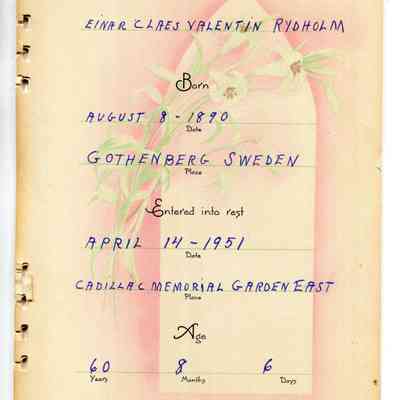 EINAR CLAES VALENTIN RYDHOLM
Born
AUGUST 8 - 1890
Date
GOTHENBERG SWEDEN
Place
Entered into rest
APRIL 14 - 1951
Date
CADILLAC MEMORIAL GARDEN EAST
Place
Age
60 8 6
Years Months Days